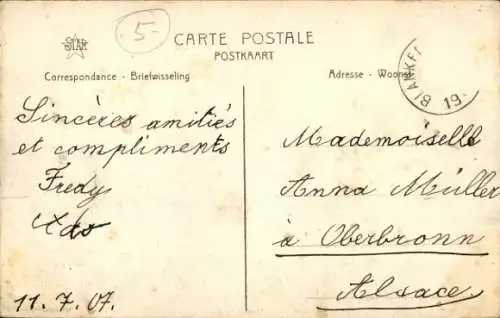 STAR
5-
CARTE POSTALE
POSTKAART
Correspondance - Briefwisseling
Adresse - Woonst
BLANKE
19
Sincères amitiés
et compliments
Fredy
11.7.07.
Mademoiselle
Anna Müller
à Oberbronn
Alsace